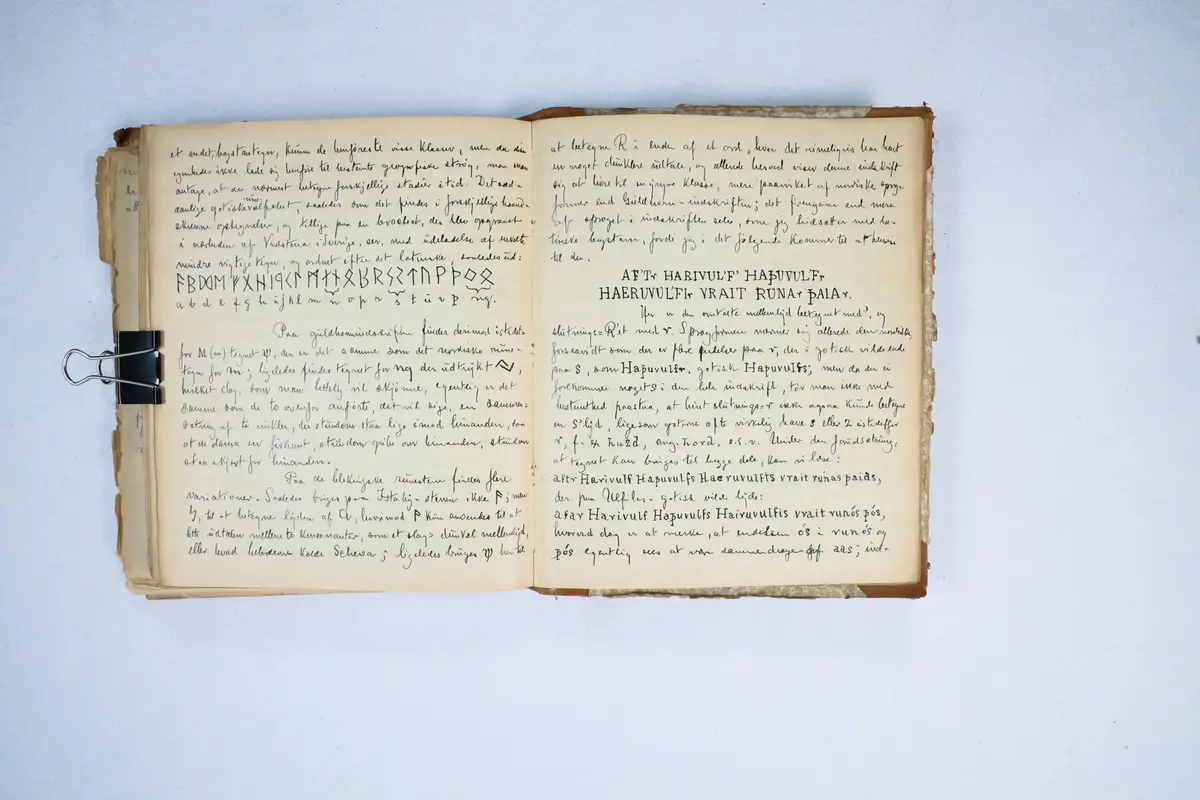 et andet bogstavtegn, kunne de henføreste visse klasser, men da disse
egenheder ikke lade sig henføre til bestemte geografiske strøg, maa man
antage, at de nærmest betegne forskjellige stadier i tid. Det sæd-
vanlige gotiske runealfabet, saaledes som det findes i forskjellige haand-
skrevne optegnelser, og tillige paa en bracteat, der blev opgravet
i nærheden af Vadstena i Sverige, ser, med udeladelse af enkelte
mindre vigtige tegn, og ordnet efter det latinske, saaledes ud:
ᚨᛒᛞᛖᚠᚷᚺᛁ
a b d e f g h i j k l m n o p r s t u v þ ng.
Paa guldhornindskriften findes derimod istedet
for M (m) tegnet ᛉ, der er det samme som det nordiske rune-
tegn for m; ligeledes findes tegnet for ng der udtrykt
hvilket dog, som man letelig vil skjønne, egentlig er det
samme som de to ovenfor anførte, det vil sige, en sammen-
sætning af to vinkler, der stundom staa lige imod hinanden, saa
at de danne en firkant, stundom gribe over hinanden, stundom
staa skjævt for hinanden.
Paa de blekingske runestene findes flere
variationer. Saaledes bruges paa Istaby-stenen ikke ᚨ; men
til at betegne lyden af a, hvorimod ᚨ kun anvendes til at
udtalen mellem to konsonanter, som et slags dunkel mellemlyd,
eller hvad hebræerne kalde Schewa; ligeledes bruges ᛉ her til
at betegne R i enden af et ord, hvor det rimeligvis har havt
en noget dunklere udtale, og allerede herved viser denne indskrift
sig at høre til en yngre klasse, mere paavirket af nordiske sprog-
former end Guldhorn-indskriften; det fremgaar end mere
af sproget i indskriften selv, som jeg hidsætter med la-
tinske bogstaver, fordi jeg i det følgende kommer til at henvise
til den.
AF'Tr HARIVUL'F' HAÞUVUL'Fr
HAERUVUL'FIr VRAIT RUNAr ÞAIAr.
Her er den omtalte mellemlyd betegnet med ', og
slutnings-R'et med r. Sprogformen nærmer sig allerede den nordiske,
forsaavidt som der er flere endelser paa r, der i gotisk vilde ende
paa s, som Haþuvulfr, gotisk Haþuvulfs; men da der ei
forekommer noget s i den hele indskrift, tør man ikke med
bestemthed paastaa, at hint slutnings-r ikke ogsaa kunde betegne
en S'lyd, ligesom goterne ofte virkelig have s eller z istedetfor
r, f. ex huzd, ang. hord, o.s.v. Under den forudsætning,
at tegnet kan bruges til begge dele, kan vi læse:
aftr Harivulf Haþuvulfs Haeruvulfis vrait runas þaias,
der paa Ulfilas-gotisk vilde lyde:
afar Harivulf Haþuvulfs Hairuvulfis vrait runós þós,
hvorved dog er at mærke, at endelsen ós i runós og
þós egentlig sees at være sammendragen af aas; ind-